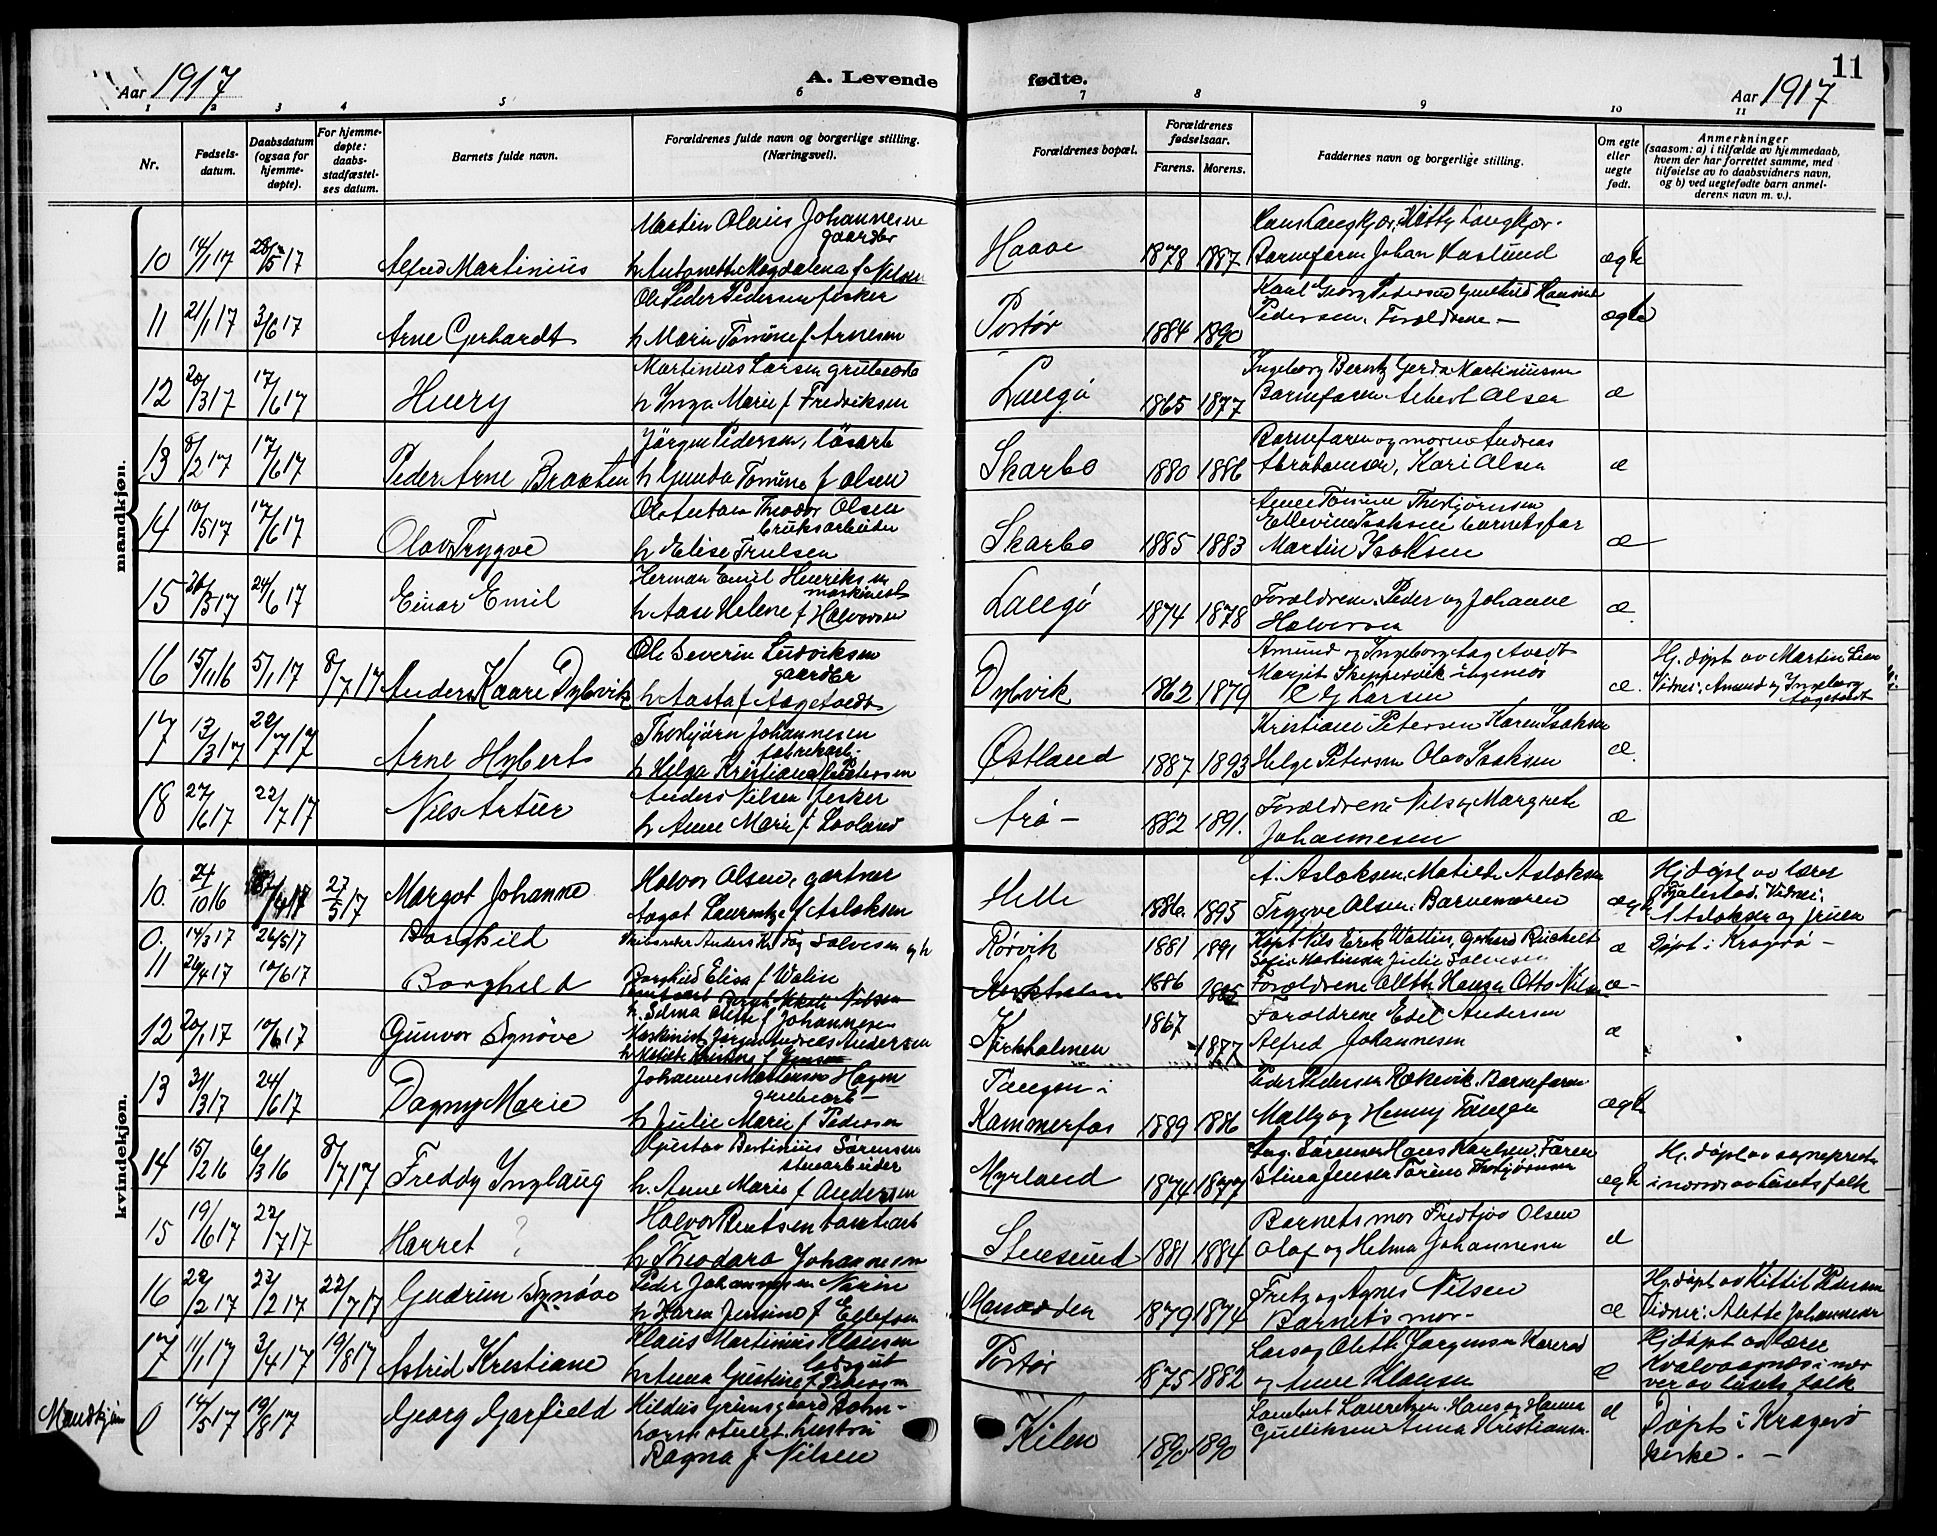 11
Aar 1917 A. Levende fødte. Aar 1917
1 2 3 4 5 6 7 8 9 10 11
Nr.
Fødsels-
datum.
Daabsdatum
(ogsaa for
hjemme-
døpte).
For hjemme-
døpte:
daabs-
stadfæstel-
ses datum.
Barnets fulde navn.
Forældrenes fulde navn og borgerlige stilling.
(Næringsvei).
Forældrenes bopæl.
Forældrenes
fødselsaar.
Farens. Morens.
Faddernes navn og borgerlige stilling.
Om egte
eller
uegte
født.
Anmerkninger
(saasom: a) i tilfælde av hjemmedaab,
hvem der har forrettet samme, med
tilføielse av to daabsvidners navn,
og b) ved uegtefødte barn anmel-
derens navn m. v.).
mandkjøn.
Martin Olaius Johannesen
gaardbr
10 14/1 17 28/5 17 Alfred Martinius h Antonette Magdalena f Nilsen Haave 1878 1887 Barnefaren Johan Kaslund ægte
Ole Peder Pedersen fisker
Karl Georg Pedersen Gunhild Hansine
11 21/1 17 3/6 17 Arne Gerhardt h Marie Tomine f Arnesen Portør 1884 1890 Pedersen. Forældrene — ægte
Martinius Larsen grubearb
Ingeborg Berntz Gerda Martiniussen
12 20/3 17 17/6 17 Henry h Inga Marie f Fredriksen Langø 1865 1877 Barnefaren Albert Olsen æ
Jörgen Pedersen, lösarb
Barnefaren og moren Andreas
13 8/2 17 17/6 17 Peder Arne Braaten h Gunda Tomine f Olsen Skarbo 1880 1886 Abrahamsen, Kari Olsen æ
Ole Anton Theodor Olsen
bruksarbeider
Anne Tomine Thorbjørnsen
Ellevine Isaksen barnets far
14 10/5 17 17/6 17 Olav Trygve h Elise Trulsen Skarbo 1885 1883 Martin Isaksen æ
Herman Emil Henriksen
maskinist
15 20/3 17 24/6 17 Einar Emil h Aase Helene f Halvorsen Langø 1874 1878 Forældrene. Peder og Johanne
Halvorsen æ
Ole Severin Ludviksen
gaardbr
Amund og Ingeborg Aagetvedt
Margit Skippervik ingeniør
16 15/11 16 5/1 17 8/7 17 Anders Kaare Dybvik h Aasta f Aagetvedt Dybvik 1862 1879 C G Larsen æ. Hj. døpt av Martin Lien
Vidner: Amund og Ingeborg
Aagetvedt
Thorbjørn Johannesen
fabrikarb.
Kristiane Petersen Karen Isaksen
17 13/3 17 22/7 17 Arne Hybert h Helga Kristiane f Petersen Østland 1887 1893 Helge Petersen Olav Isaksen æ.
Anders Nilsen fisker
18 27/6 17 22/7 17 Nils Artur h Anne Marie f Lovland Arø — 1882 1891. Forældrene Nils og Margrete
Johannesen æ
kvindekjøn.
Halvor Olsen, gartner
A. Aslaksen. Matilde Aslaksen
10. 24/10 16 /4 17 27/5 17 Margot Johanne Aagot Laurentze f Aslaksen Helle 1886. 1895 Trygve Olsen. Barnemoren ægte Hj døpt av lærer
Fjalestad. Vidner:
A Aslaksen og fruen
0. 14/3 17 26/5 17 Borghild Skibsreder Anders Kr. Salvesen og h Rørvik 1881 1891 Kapt Nils Eirik Wallin, Gerhard Reichelt æ Døpt i Kragerø —
Sofie Martinsen Julie Salvesen
Borghild Elisa f Walin
11 26/4 17 10/6 17 Borghild Bergh. Nikolai Nilsen
h. Selma Olette f Johannesen 1886 1885 Forældrene Olette Hansen Otto Nilsen æ —
12 20/1 17 10/6 17 Gunvor Synøve Maskinist Jörgen Andreas Andersen
h Matilde Kristine f Jensen Kirkholmen 1867 1877 Forældrene Edel Andersen
Alfred Johannesen æ
Johannes Mathisen Hagen
grubearb —
13 31/3 17 24/6 17 Dagny Marie h Julie Marie f Pedersen Tangen i
Kammerfos 1889 1886 Peder Pedersen Rækevik. Barnefaren
Mally og Henny Tangen ægte
Gustav Bertinius Sørensen
stuearbeider
14 15/2 16 6/3 16 8/7 17 Freddy Inglaug h. Anne Marie f Andersen Myrland 1874 1877 Aug. Sørensen Hans Karlsen. Faren
Stina Jensen Torine Thorbjørnsen ægte Hj. døpt av sogneprest
i nærvær av husets folk
15 19/6 17 22/7 17 Harret ? Halvor Bentsen tomtearb
h Theodora Johannesen Stensund 1881 1884 Barnets mor Fredtjov Olsen
Olaf og Helma Johannesen æ
16 22/2 17 22/2 17 22/7 17 Gudrun Synøve Peder Johannesen Næsin
h Karen Jensine f Ellefsen 1879 1874 Fritz og Agnes Nilsen
Barnets mor — æ Hj døpt av Kittil Pedersen
Vidner: Alette Johannesen
17 11/1 17 3/4 17 19/8 17 Astrid Kristiane Klaus Martinius Klausen
losgut
h Anna Gustine f Petersen Portør 1875 1882 Lars og Olette Jørgensen
og Anne Klausen æ Hj døpt av lærer
Kvalvaagnæs i nær
vær av husets folk
Mandkjøn 0 14/5 17 19/8 17 Georg Garfield Kildus Grimsgaard Bohm-
hustru
Ragna f Nilsen Kilen 1890 1890 Lambert Lauretzen. Hans og Hanna
Gulliksen Anna Kristiansen. æ Døpt i Kragerø
kirke. —